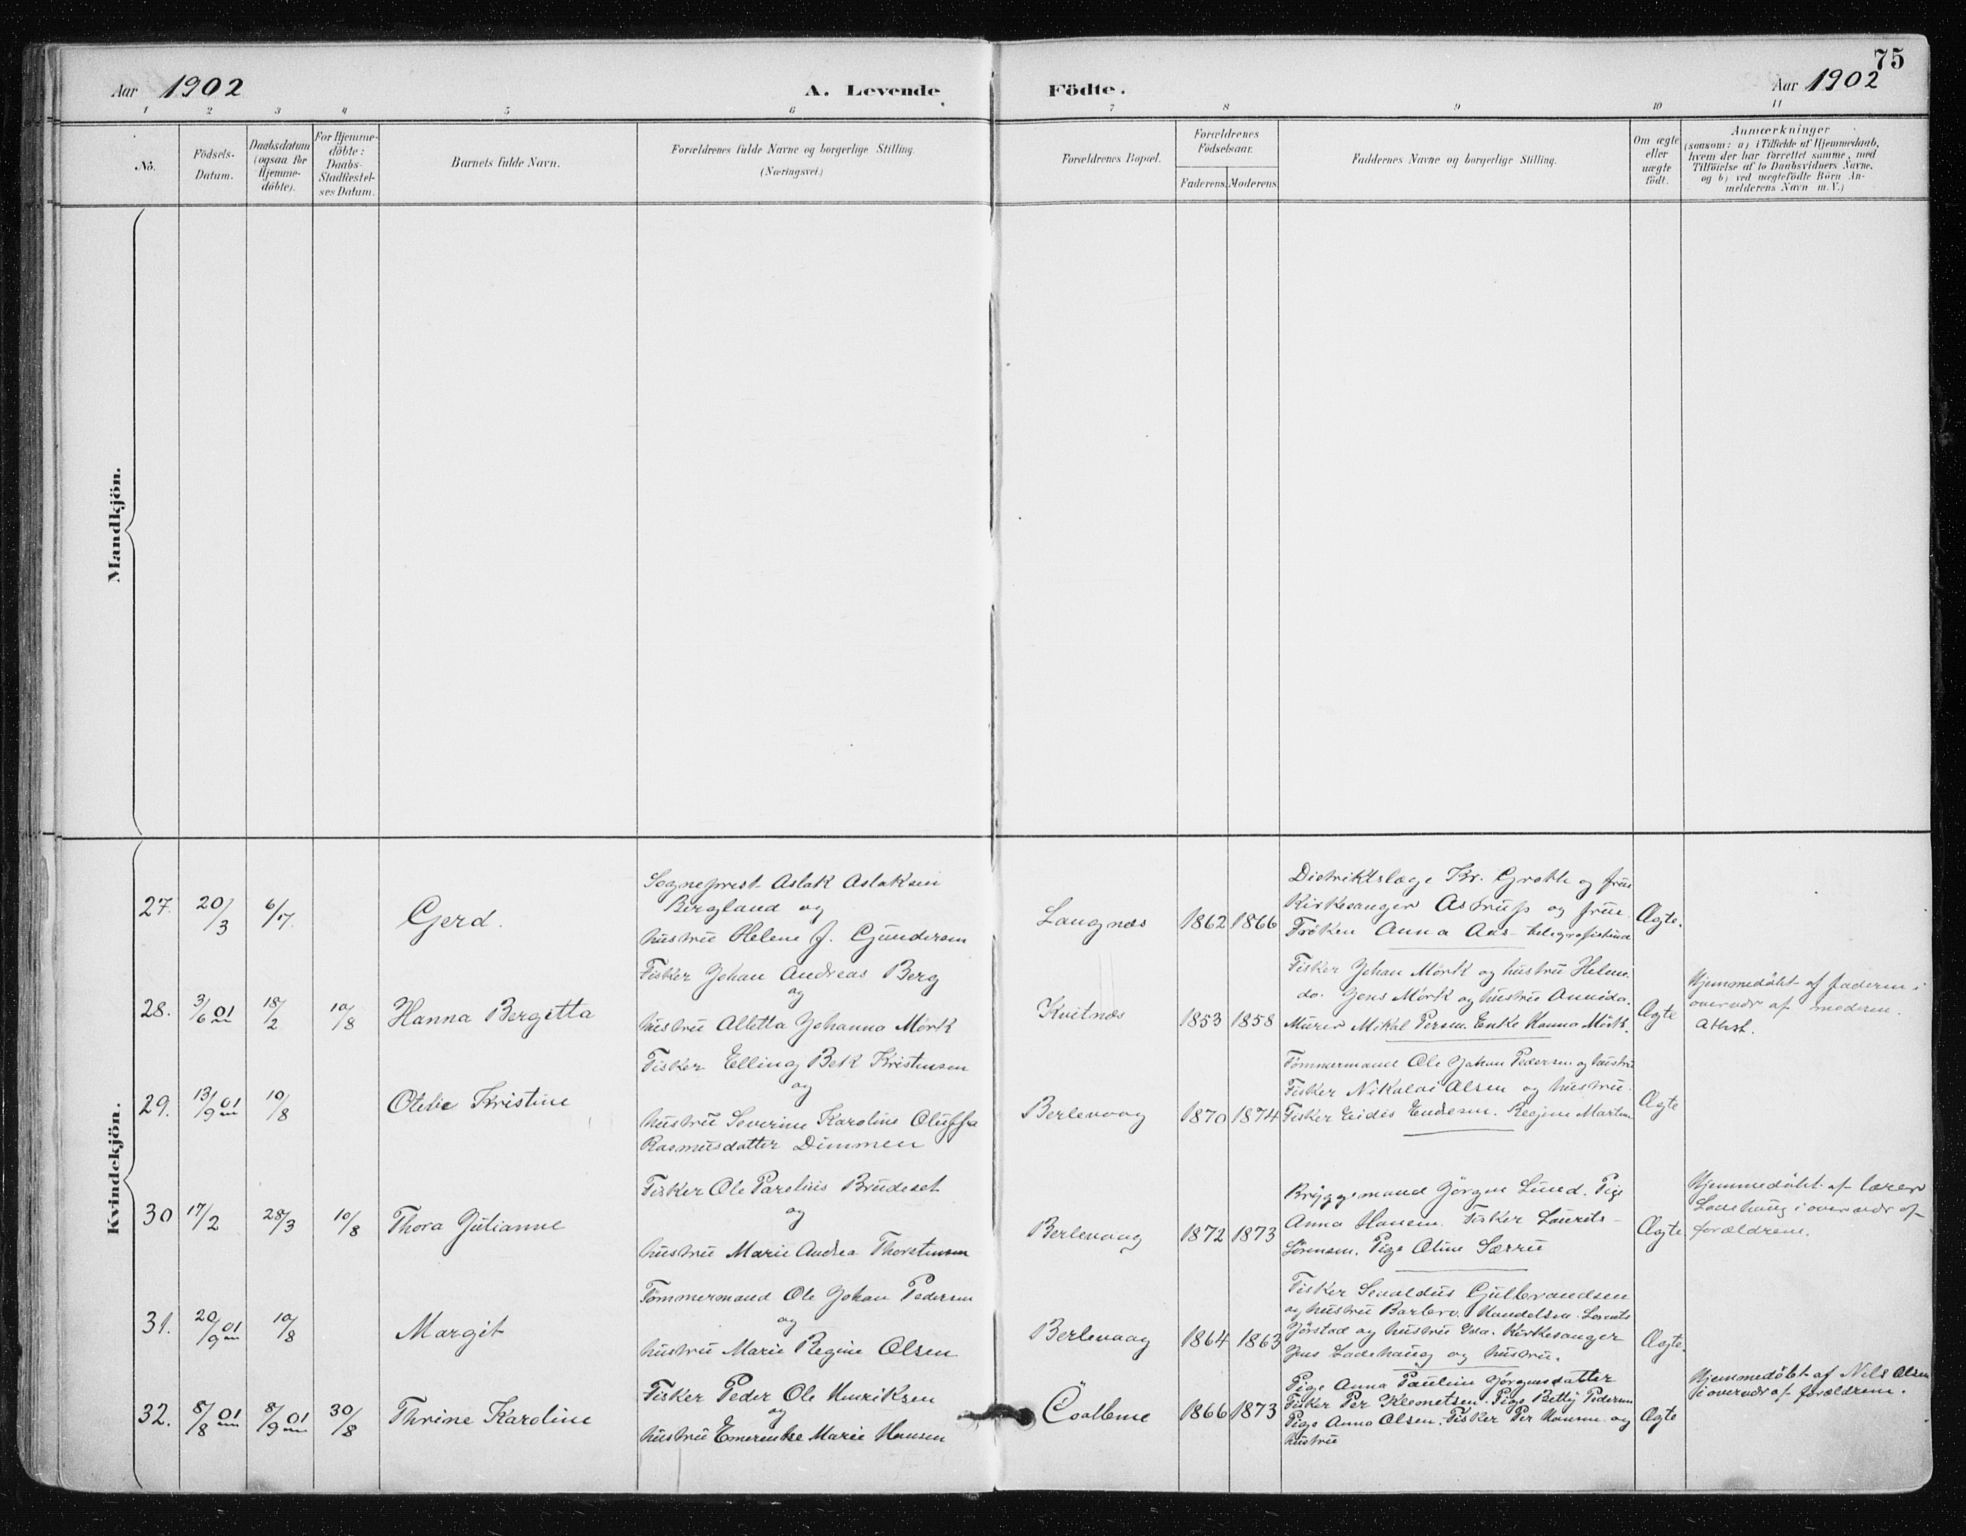 75
Aar 1902 A. Levende Födte. Aar 1902
1 2 3 4 5 6 7 8 9 10 11
No.
Födsels-
Datum.
Daabsdatum
(ogsaa for
Hjemme-
döbte).
For Hjemme-
döbte:
Daabs-
Stadfestel-
ses Datum.
Barnets fulde Navn.
Forældrenes fulde Navne og borgerlige Stilling.
(Næringsvei.)
Forældrenes Bopæl.
Forældrenes
Födselsaar.
Faderens. Moderens.
Faddernes Navne og borgerlige Stilling.
Om ægte
eller
uægte
födt.
Anmærkninger
(saasom: a) i Tilfælde af Hjemmedaab,
hvem der har forrettet samme, med
Tilföielse af to Daabsvidners Navne,
og b) ved uægtefödte Börn An-
melderens Navn m. V.)
Mandkjön.
Kvindekjön.
27. 20/3 6/7. Gerd.
Sogneprest Aslak Aslaksen
Bergland og
hustru Helene J. Gundersen
Langnæs 1862 1866
Distriktslæge Kr. Groth og frue
Kirkesanger Astrup og frue.
Frøken Anna Aas - telegrafistinde
Ægte.
28. 3/6 01 18/2 10/8 Hanna Bergetta
Fisker Johan Andreas Berg
og
hustru Alletta Johanna Mörk
Kvitnæs 1853 1858
Fisker Johan Mörk og hustru Helene.
do. Jens Mörk og hustru
Murer Mikal Persen. Enke Hanna Mörk.
Ægte
Hjemmedöbt af faderen i
overvær af moderen.
Attest.
29. 13/9 01 10/8 Otelie Kristine
Fisker Elling Bek Kristensen
og
hustru Severine Karoline Oluffa
Rasmusdatter Dimmen
Berlevaag 1870 1874
Tömmermand Ole Johan Pedersen og hustru
Fisker Nikolai Olsen og hustru.
Fisker Eidis Endresen. Regine Marten
Ægte
30 17/2 28/3 10/8 Thora Julianne
Fisker Ole Parelius Brudeset
og
hustru Marie Andrea Thorstensen
Berlevaag 1872 1873
Bryggemand Jörgen Lund. Pige
Anna Hansen. Fisker Laurits
Sörensen. Pige Oline Særre
Ægte
Hjemmedöbt af lærer
Ladehaug i overvær af
forældrene.
31. 20/9 01 10/8 Margit
Tömmermand Ole Johan Pedersen
og
hustru Marie Regine Olsen
Berlevaag 1864 1863
Fisker Sevaldus Gulbrandsen
og hustru Barbro. Handelsm. Lorents
Jörstad og hustru Ida. Kirkesanger
Jens Ladehaug og hustru.
Ægte.
32. 8/8 01 8/9 01 30/8 Thrine Karoline
Fisker Peder Ole Henriksen
og
hustru Emerentse Marie Hansen
1866 1873
Pige Anna Pauline Jörgensdatter
Fisker Per Klemetsen. Pige Betty Pedersen
Pige Anna Olsen. Fisker Per Hansen og
hustru
Ægte
Hjemmedöbt af Nils Olsen
i overvær af forældrene.